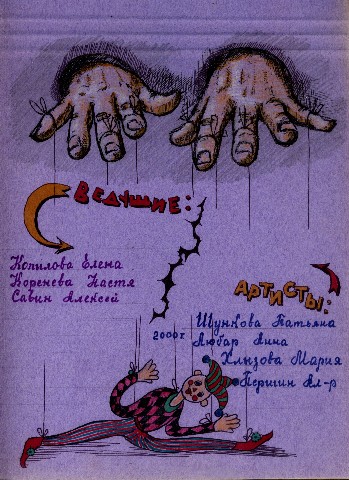 ВЕДУЩИЕ:
Копилова Елена
Коренева Настя
Савин Алексей
АРТИСТЫ:
2000г
Шункова Татьяна
Любар Анна
Хлызова Мария
Перигин Ал-р